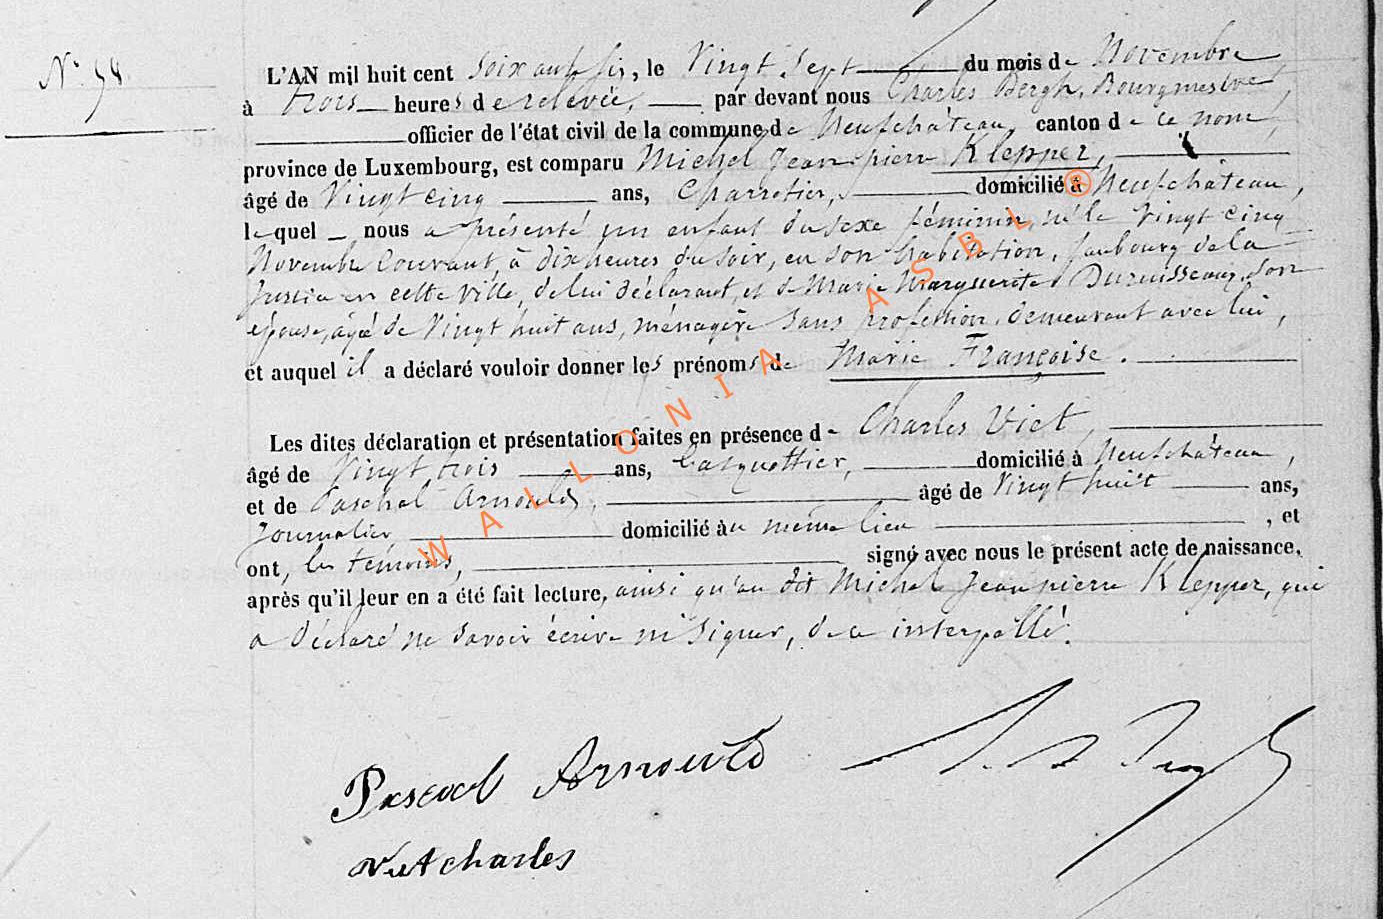 N° 98
L'AN mil huit cent soixante six, le Vingt Sept du mois de Novembre
à trois heures de relevée, par devant nous Charles Bergh, Bourgmestre,
officier de l'état civil de la commune de Neufchâteau, canton de ce nom,
province de Luxembourg, est comparu Michel Jean pierre Klepper,
âgé de Vingt cinq ans, Charretier, domicilié à Neufchâteau,
lequel nous a présenté un enfant du sexe féminin, né le Vingt cinq
Novembre Courant, à dix heures du soir, en son habitation, faubourg de la
Justice en cette ville, de lui déclarant, et de Marie Marguerite Duruisseaux, son
épouse, âgé de Vingt huit ans, ménagère sans profession, demeurant avec lui,
et auquel il a déclaré vouloir donner les prénoms de Marie Françoise.
Les dites déclaration et présentation faites en présence de Charles Viet,
âgé de Vingt trois ans, Casquettier, domicilié à Neufchâteau,
et de Paschal Arnould, âgé de Vingt huit ans,
Journalier domicilié au même lieu , et
ont, les témoins, signé avec nous le présent acte de naissance,
après qu'il leur en a été fait lecture, ainsi qu'au dit Michel Jean pierre Klepper, qui
a déclaré ne savoir écrire ni signer, de ce interpellé.
Pascal Arnould
Viet charles
WALLONIA ASBL ®